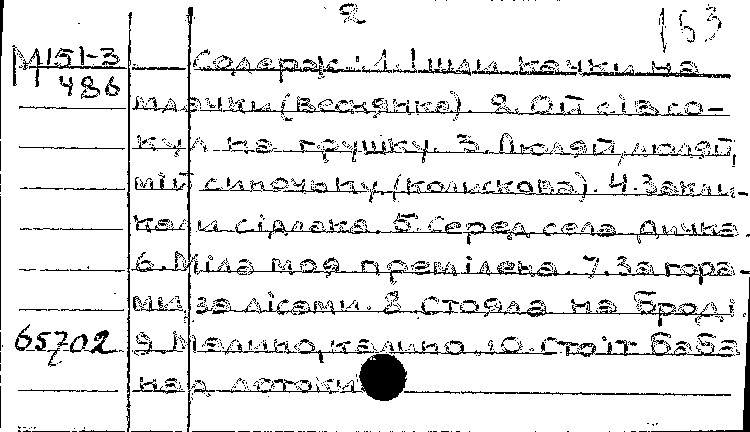 2
163
М151-3 Содерж.: 1. Ішли качки на
486
млачки (веснянка). 2. Ой сів со-
кул на грушку. 3. Люляй, люляй,
мій синочьку (колискова). 4. Закли-
кали сідлака. 5. Серед села дичка.
6. Міла моя премілена. 7. За гора-
ми, за лісами. 8. Стояла на броді.
65702 9. Малино, калино. 10. Стоїт баба
над потоки